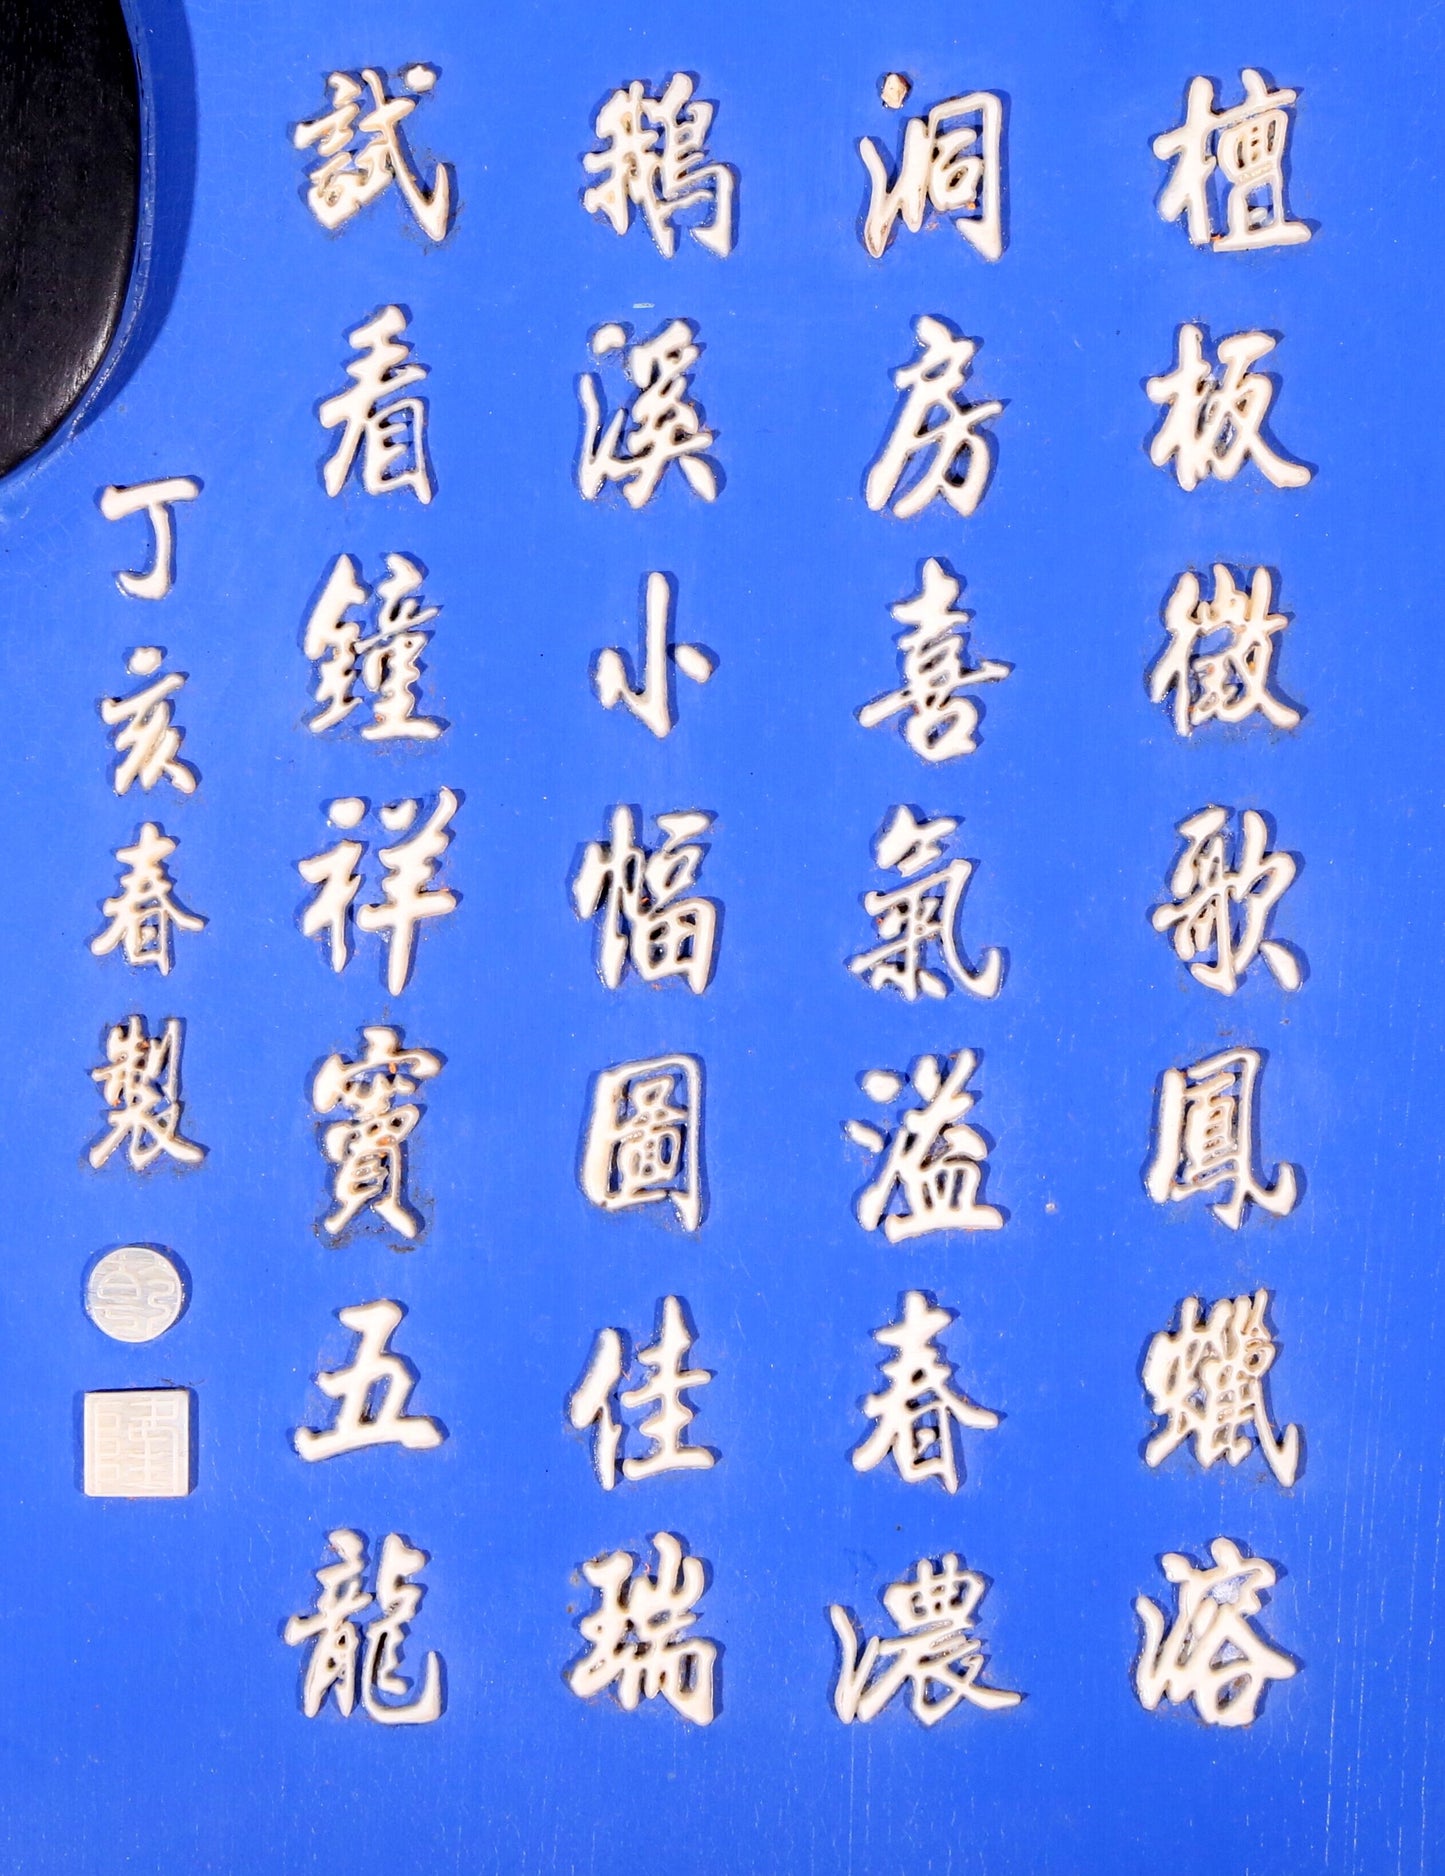 檀板徵歌鳳蠟溶
洞房喜氣溢春濃
鵝溪小幅圖佳瑞
試看鐘祥竇五龍
丁亥春製